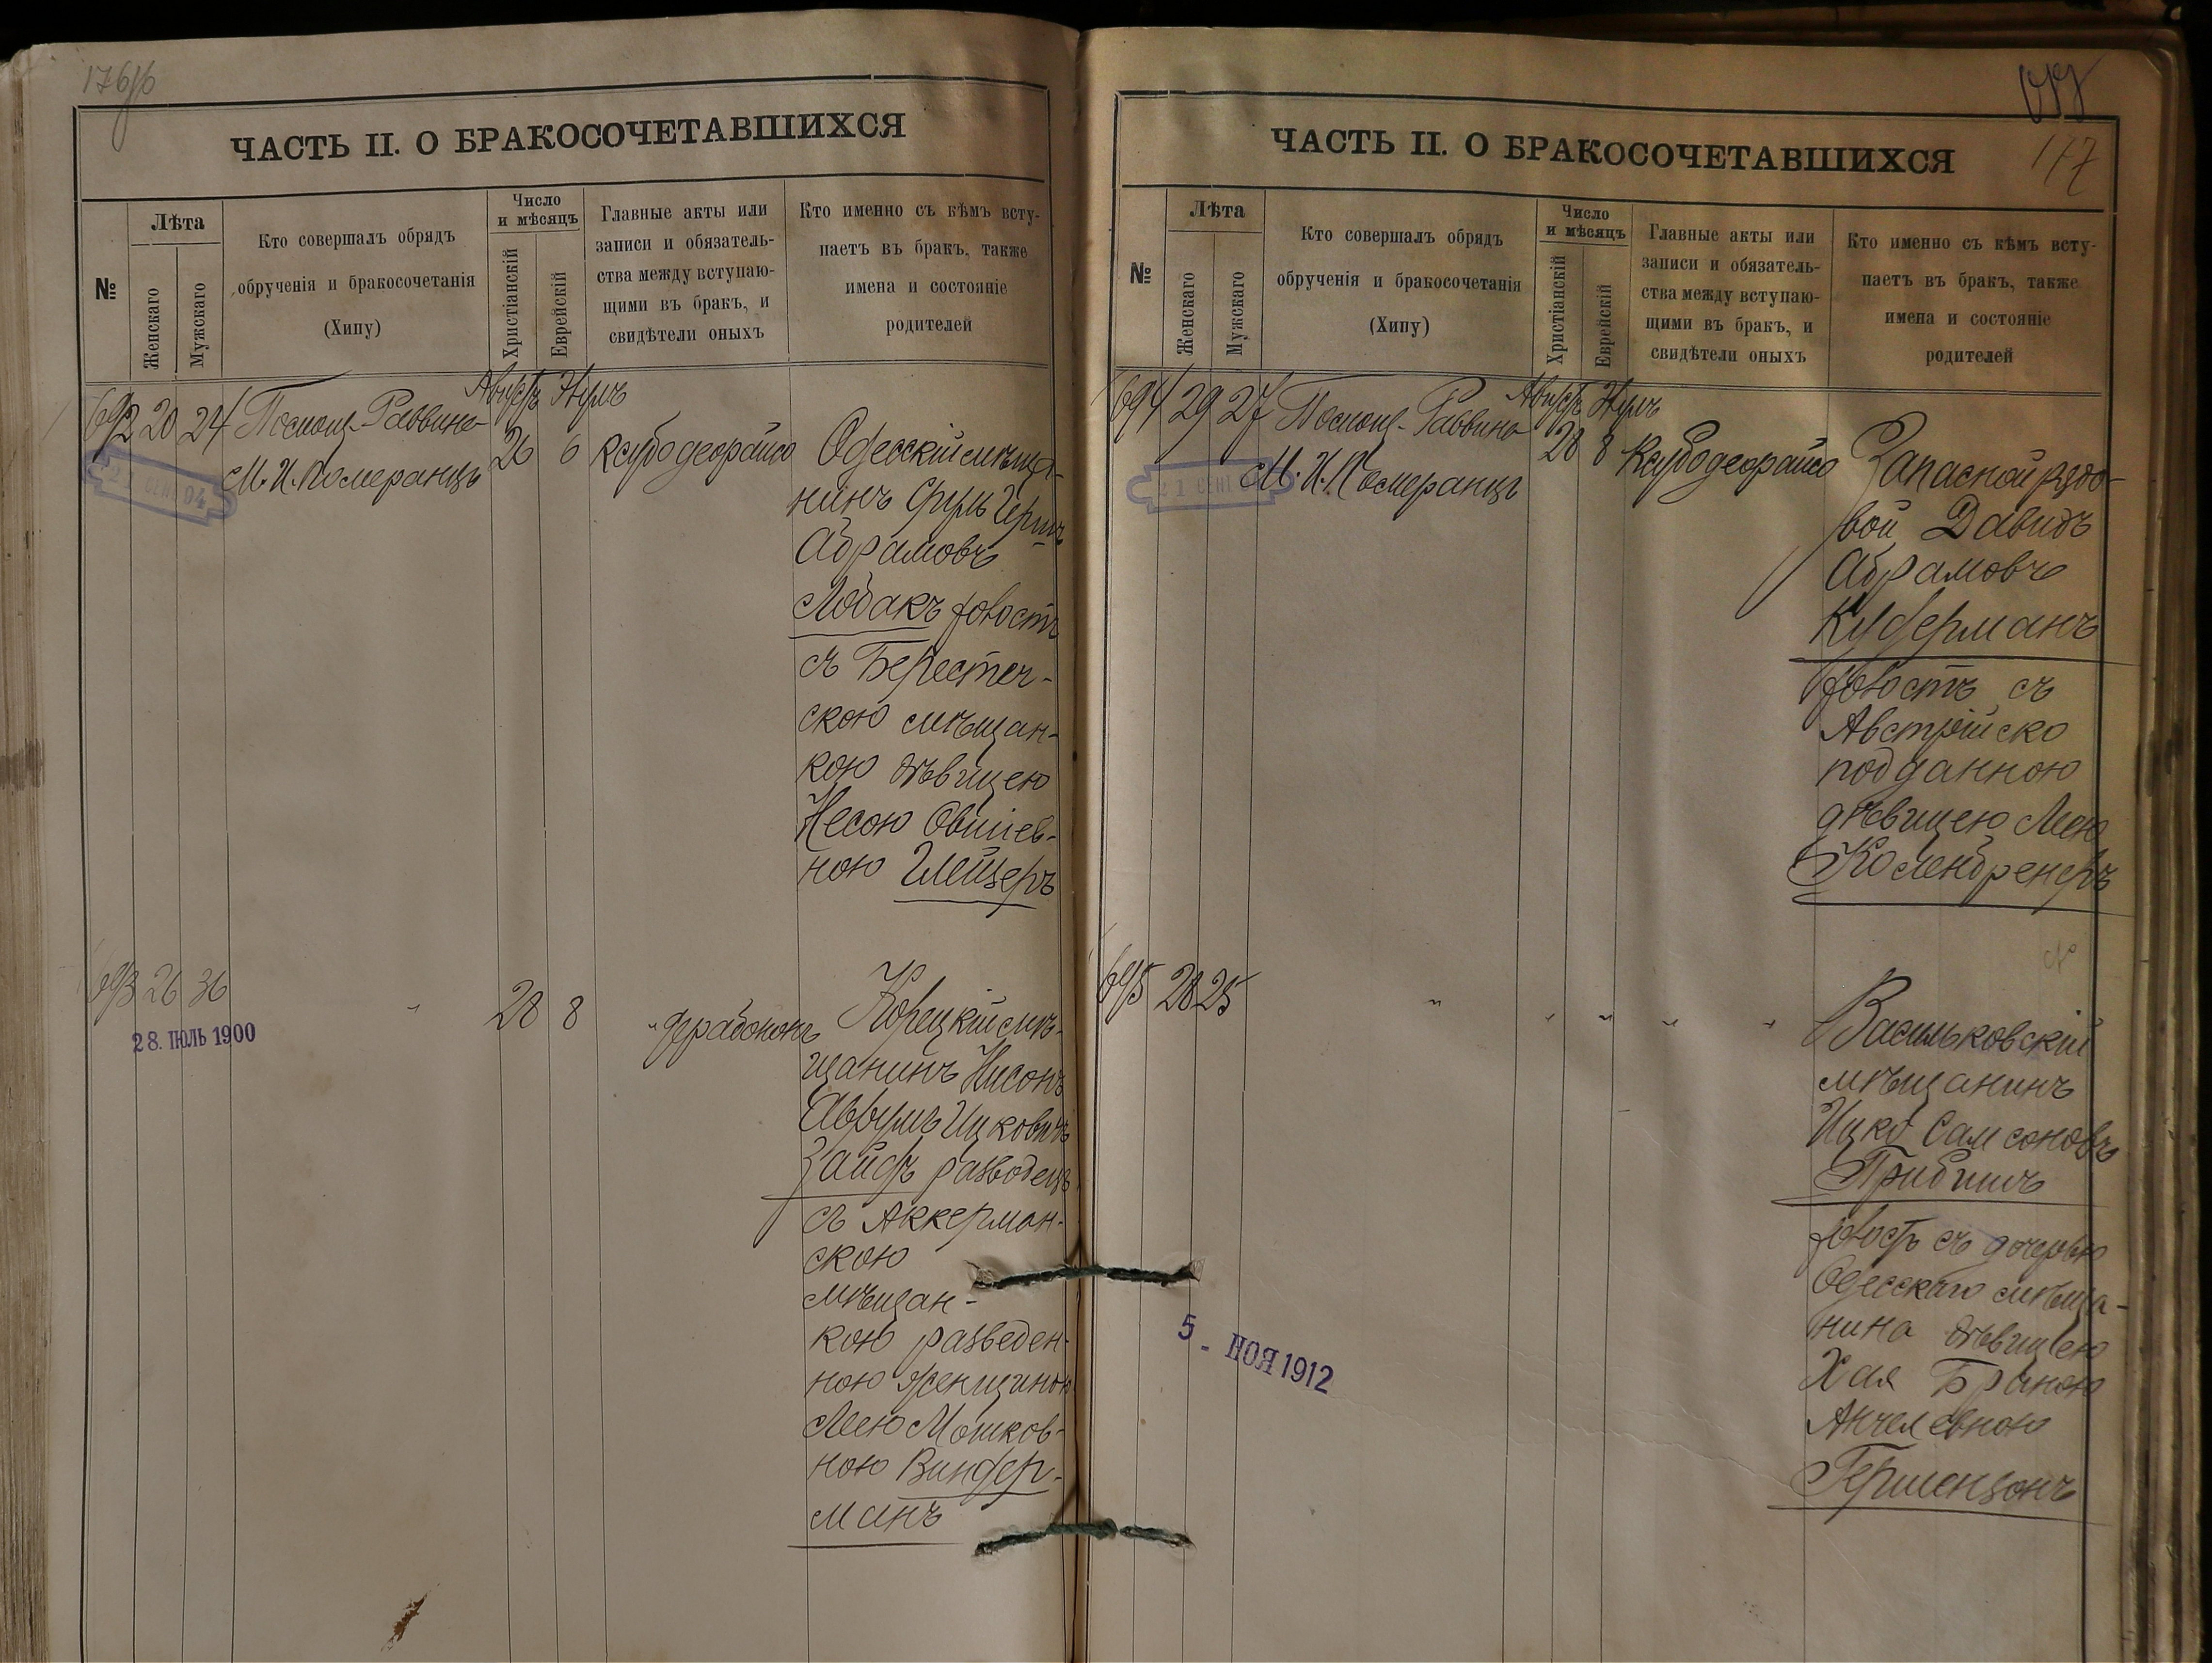 176об
ЧАСТЬ II. О БРАКОСОЧЕТАВШИХСЯ
№
Лѣта
Женскаго
Мужскаго
Кто совершалъ обрядъ
обрученія и бракосочетанія
(Хипу)
Число
и мѣсяцъ
Христіанскій
Еврейскій
Главные акты или
записи и обязатель-
ства между вступаю-
щими въ бракъ, и
свидѣтели оныхъ
Кто именно съ кѣмъ всту-
паетъ въ бракъ, также
имена и состояніе
родителей
Августъ
692 20 24 Помощ. Раввина
М. И. Померанцъ
26 6
Одесскій мѣща-
нинъ Сруль Герш
Абрамовъ
Лобакъ холостъ
съ Берестеч-
скою мѣщан-
кою дѣвицею
Несою Овшiев-
ною Глейзеръ
693 26 36 " 28 8 "
28. ІЮЛЬ 1900
Корецкій мѣ-
щанинъ Нисонъ
Аврумъ Ицковичъ
Зайфъ разводецъ
съ Аккерман-
скою
мѣщан-
кою разведен-
ною женщиною
Леею Мошков-
ною Виндер-
манъ
177
ЧАСТЬ II. О БРАКОСОЧЕТАВШИХСЯ
№
Лѣта
Женскаго
Мужскаго
Кто совершалъ обрядъ
обрученія и бракосочетанія
(Хипу)
Число
и мѣсяцъ
Христіанскій
Еврейскій
Главные акты или
записи и обязатель-
ства между вступаю-
щими въ бракъ, и
свидѣтели оныхъ
Кто именно съ кѣмъ всту-
паетъ въ бракъ, также
имена и состояніе
родителей
Августъ
694 29 27 Помощ. Раввина
М. И. Померанцъ
28 8
Запасной рядо-
вой Давидъ
Абрамовъ
Куперманъ
холостъ съ
Австрійско
подданною
дѣвицею Леею
695 28 25 " " " " "
Васильковскій
мѣщанинъ
Ицко Самсоновъ
холостъ съ дочерью
Одесскаго мѣща-
нина дѣвицею
Хая Браною
Анчелевною
Гершензонъ
5 - НОЯ 1912